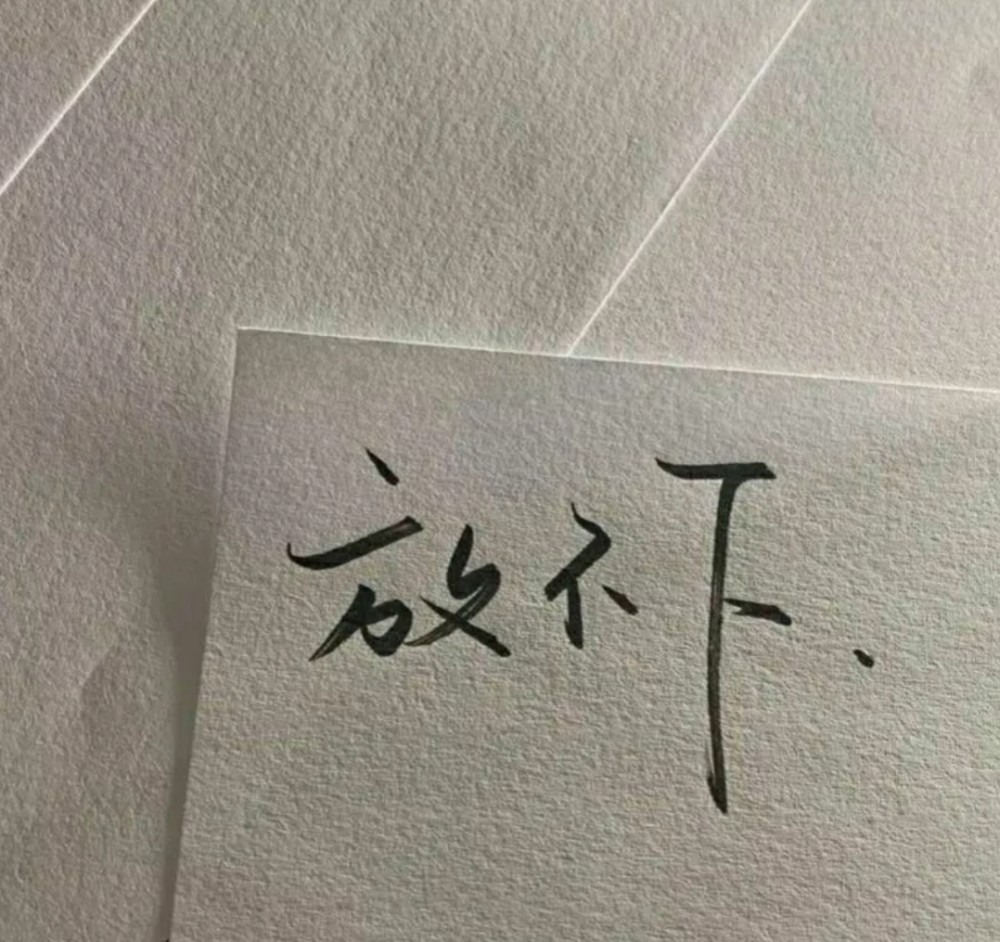 放不下.